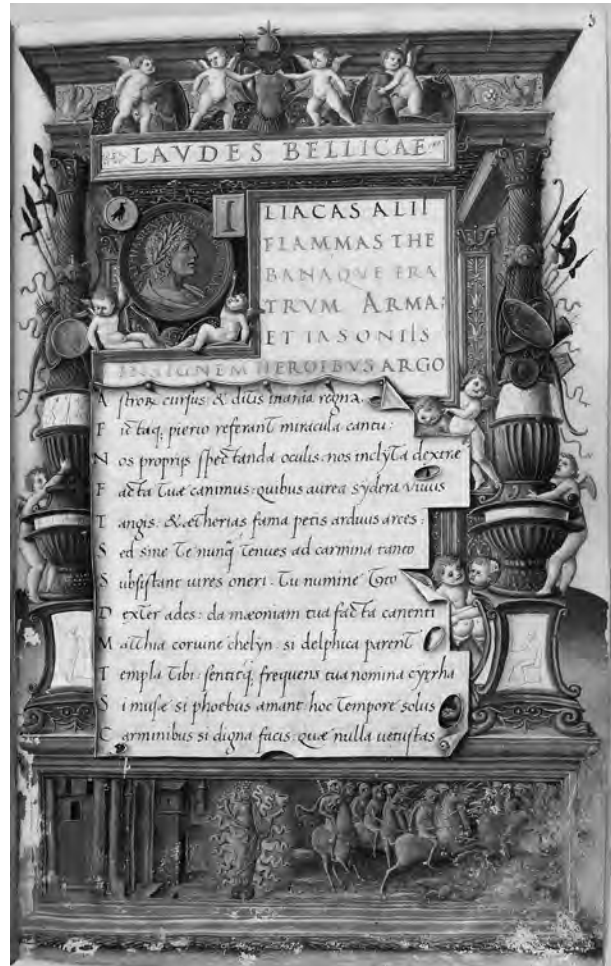 3
LAVDES BELLICAE
I
LIACAS ALII
FLAMMAS THE
BANAQVE FRA
TRVM ARMA:
ET IASONIIS
INSIGNEM HEROIBVS ARGO
Astroꝝ cursus: & ditis inania regna.
Fictaq; pierio referant miracula cantu:
Nos proprijs spectanda oculis: nos inclyta dextræ
Facta tuæ canimus: quibus aurea sydera viuus
Tangis: & ætherias fama petis arduus arces:
Sed sine te nunq̃ tenues ad carmina tanto
Subsistant uires oneri. Tu numine
Dexter ades: da mæoniam tua facta canenti
Matthia coruine chelyn: si delphica parent
Templa tibi: sentitq; frequens tua nomina cyrrha
Si musæ si phoebus amant: hoc tempore solus
Carminibus si digna facis: quæ nulla uetustas